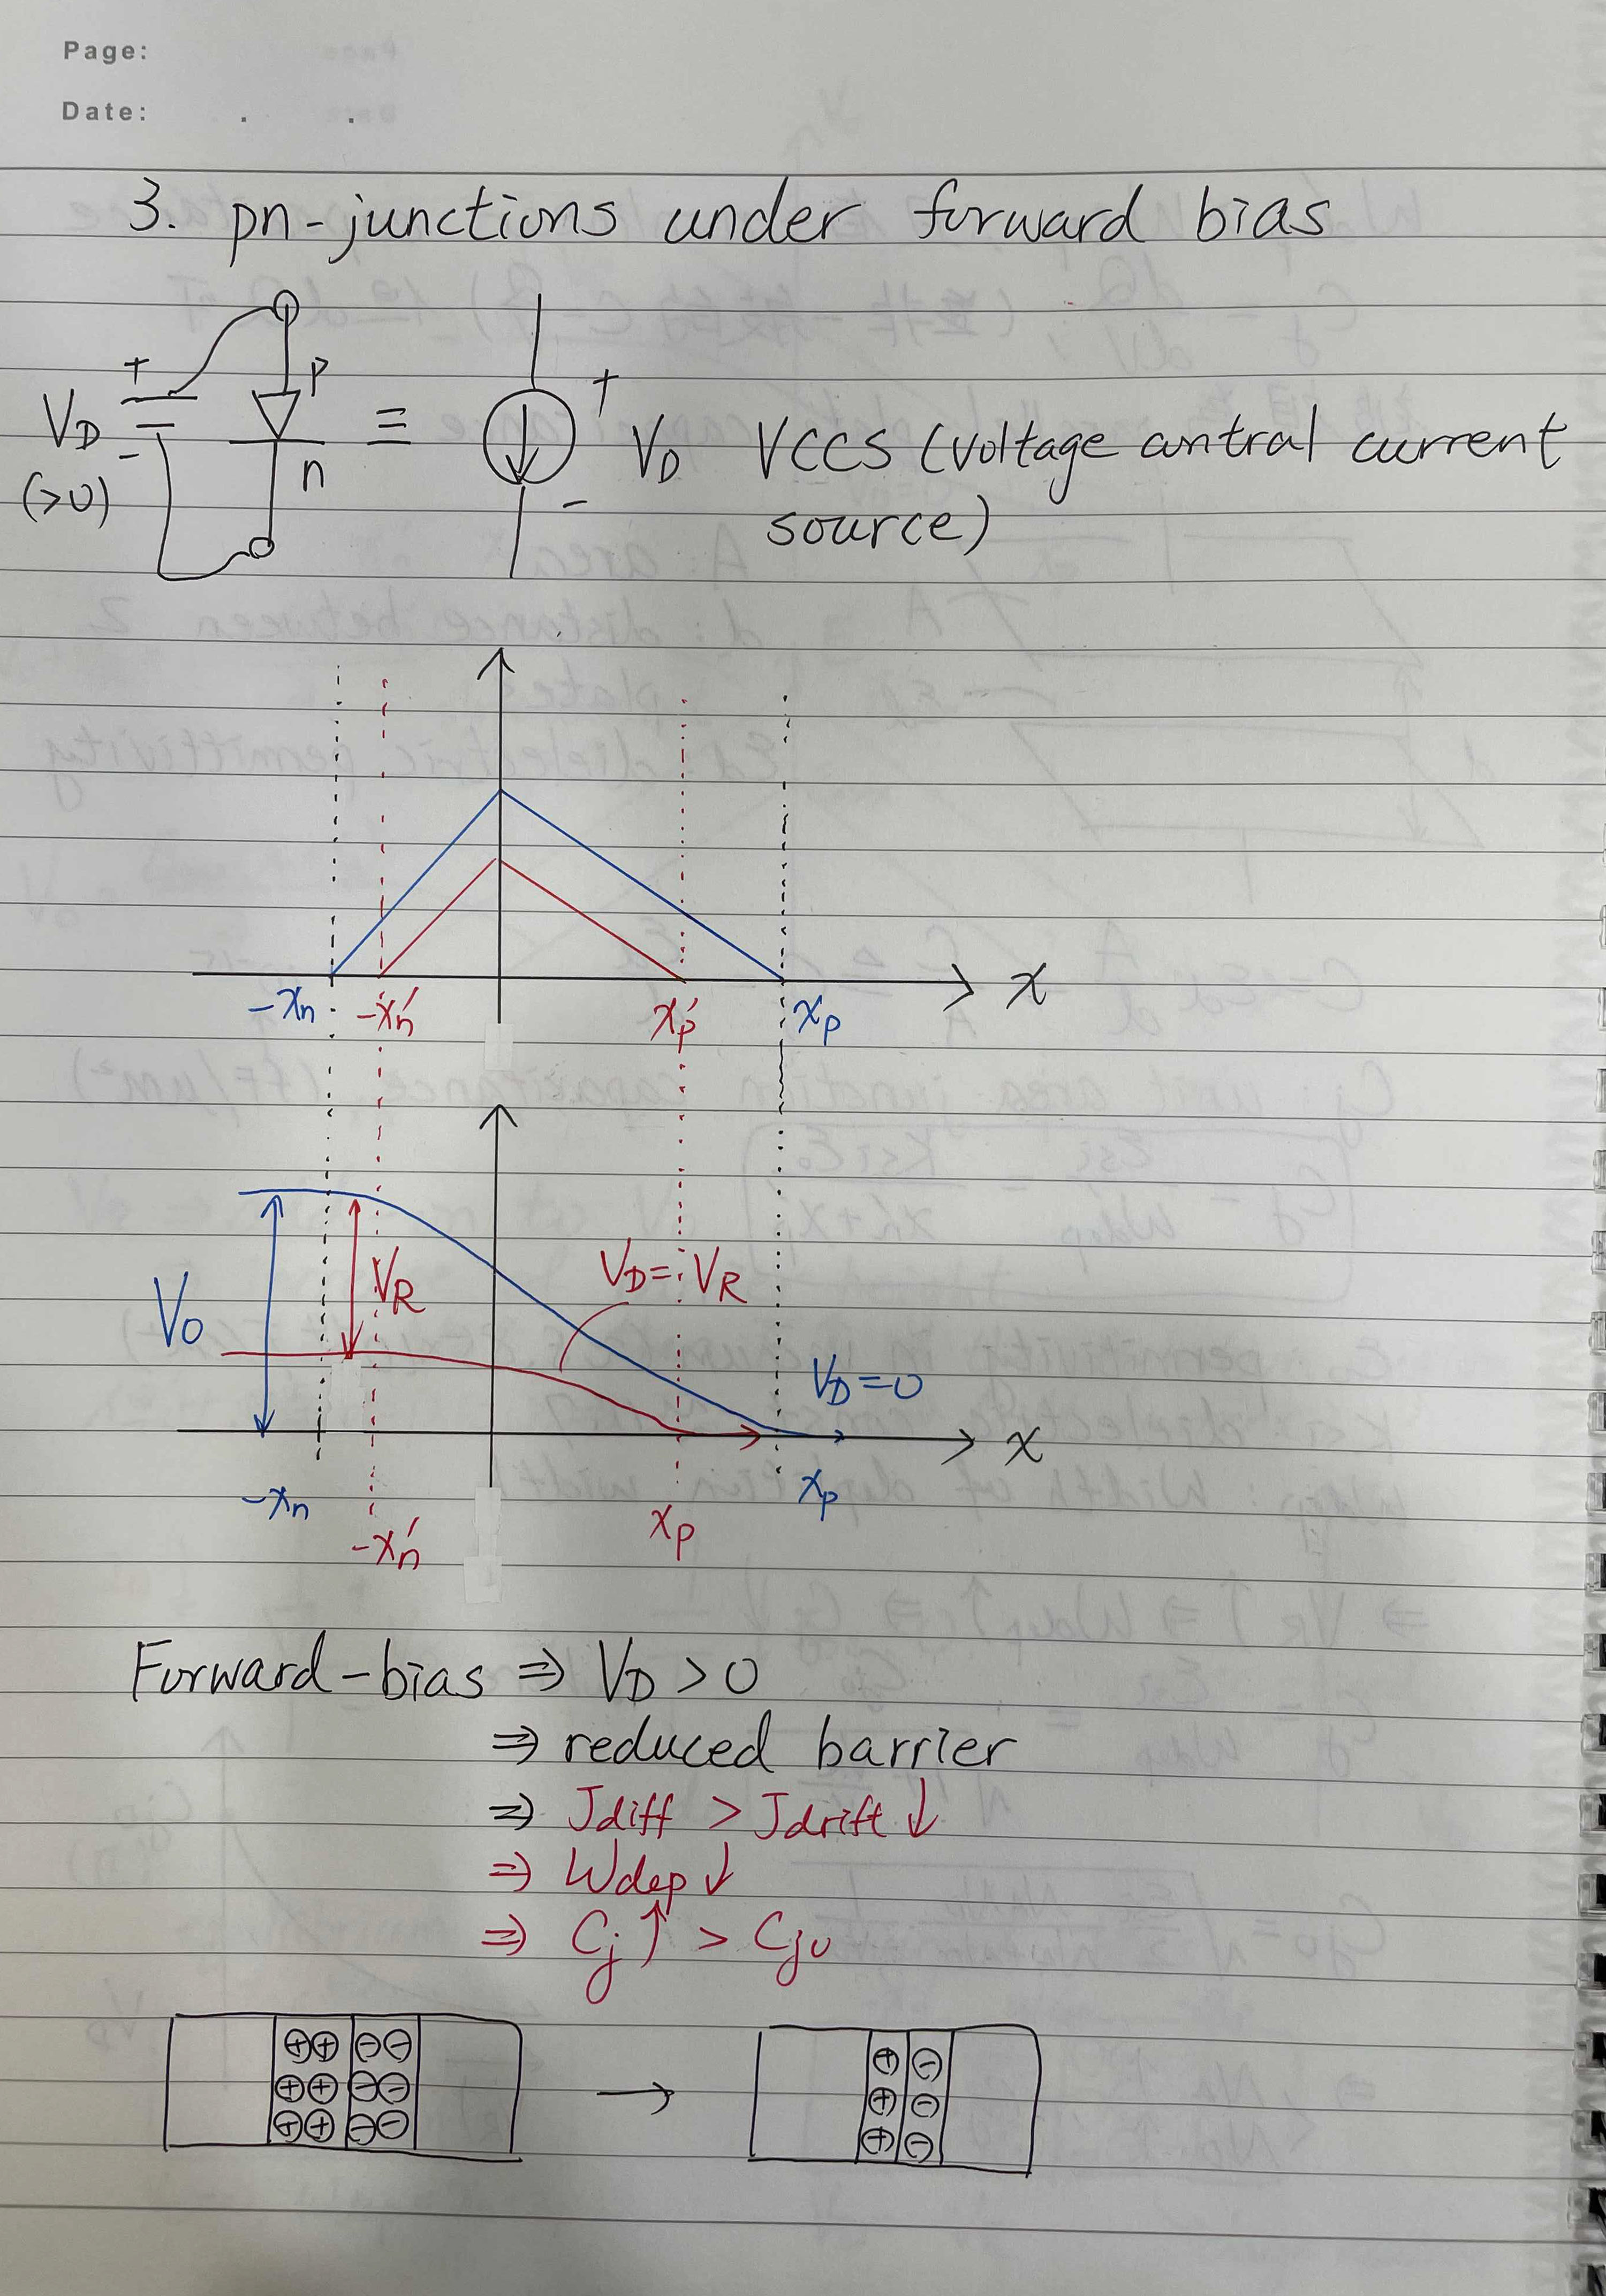 Page:
Date: . .
3. pn-junctions under forward bias
+ P
VD = + VD VCCS (voltage contral current
- n -
(>0) source)
x
-xn -xn' xp' xp
V0 VR VD = VR
VD=0
x
-xn -xn' xp xp
Forward-bias ⇒ VD > 0
⇒ reduced barrier
⇒ Jdiff > Jdrift ↓
⇒ Wdep ↓
⇒ Cj ↑ > Cj0
⊕⊕ ⊖⊖ ⊕ ⊖
⊕⊕ ⊖⊖ → ⊕ ⊖
⊕⊕ ⊖⊖ ⊕ ⊖